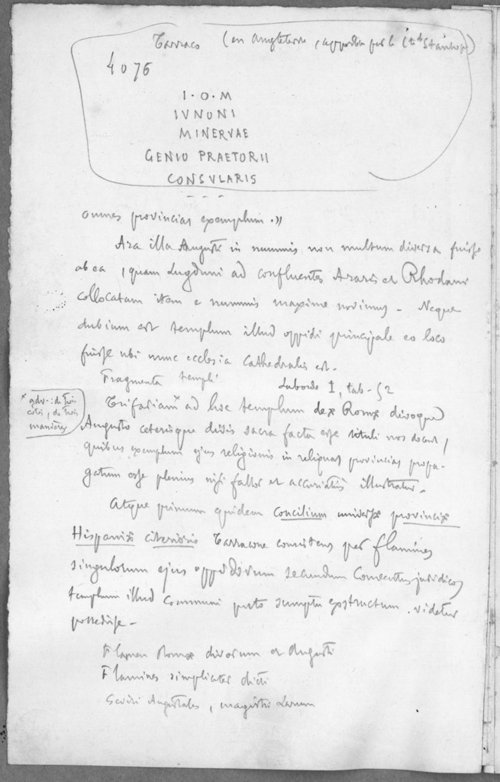 Tarraco (en Angleterre, apportée par le Cte Stanhope)
4076
I · O · M
IVNONI
MINERVAE
GENIO PRAETORII
CONSVLARIS
omnes provincias exemplum ·))
Ara illa Augusti in nummis non multum diversa fuisse
ab ea, quam Lugduni ad confluentes Araris et Rhodani
collocatam itam e nummis maxime novimus - Neque
dubium est templum illud oppidi principale eo loco
fuisse ubi nunc ecclesia Cathedralis est -
Fragmenta templi
Laborde I, tab. 52
* adv.: di
maniéres
Trifariam* ad hoc templum deæ Romæ divoque
Augusto ceterisque divis sacra facta esse tituli nos docent,
quibus exemplum ejus religionis in reliquas provincias propa-
gatum esse plenius nisi fallor et accuratius illustratur -
Atque primum quidem concilium universæ provinciæ
Hispaniæ citerioris Tarracone consistens per flamines
singulorum ejus oppidorum secundum Conventus juridicos
templum illud communi puto sumptu exstructum videtur
possedisse -
Flamen Romæ divorum et Augusti
Flamines simpliciter dicti
Seviri Augustales, magistri Larum